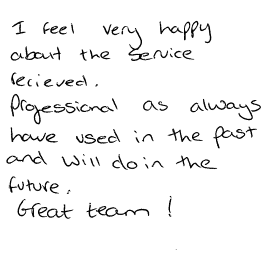 I feel very happy
about the service
recieved.
Professional as always
have used in the past
and will do in the
future.
Great team !